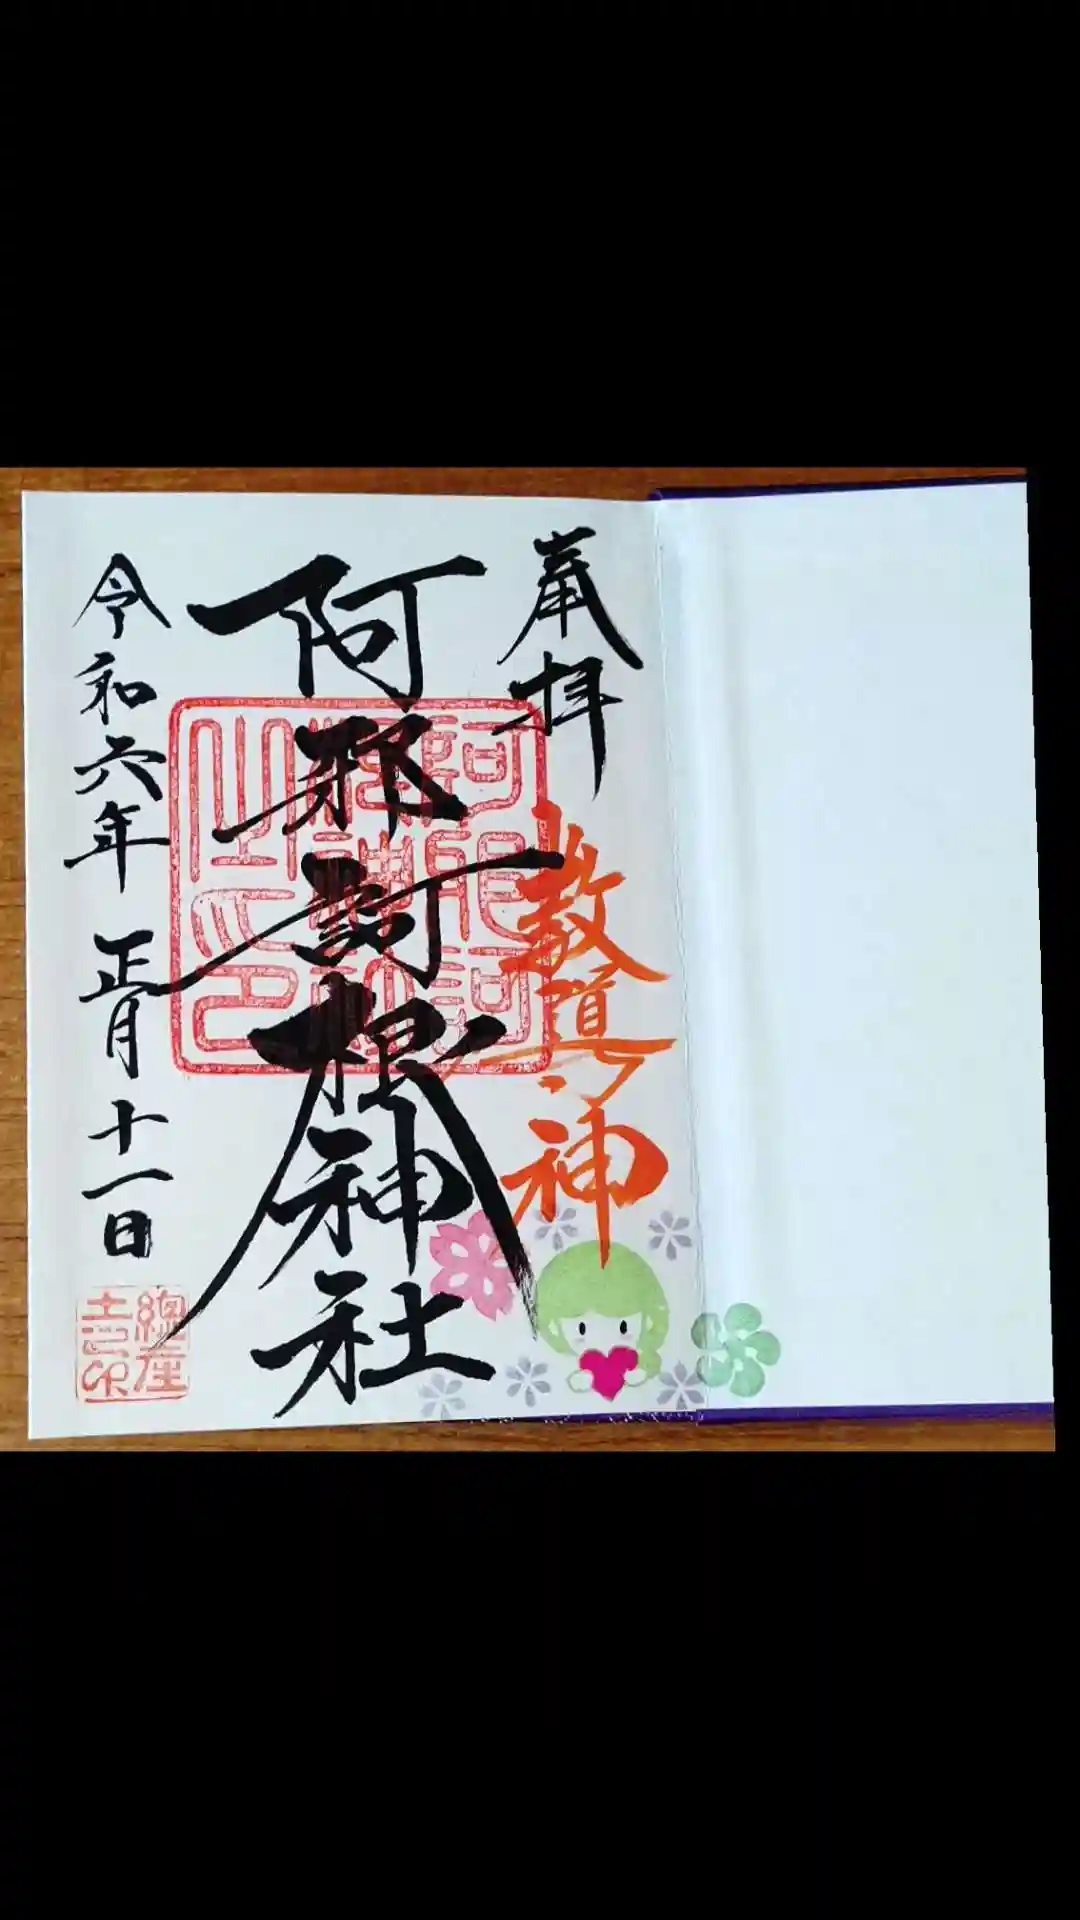 奉拝
教道ノ神
阿邪訶根神社
阿邪訶
根神社
之印
令和六年 正月 十一日
總産
土之印